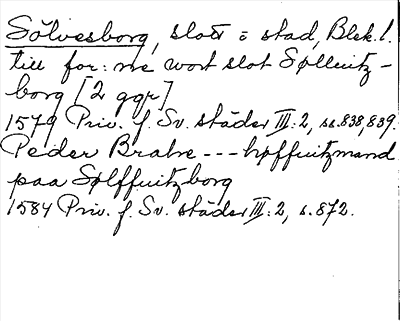 Sölvesborg, slott o stad, Blek. l.
till for:ne wort slot Sølluitz-
borg [2 ggr]
1579 Priv. f. Sv. städer III:2, ss. 838, 839.
Peder Brahe --- høffuitzmand
paa Sølffuitzborg
1584 Priv. f. Sv. städer III:2, s. 872.